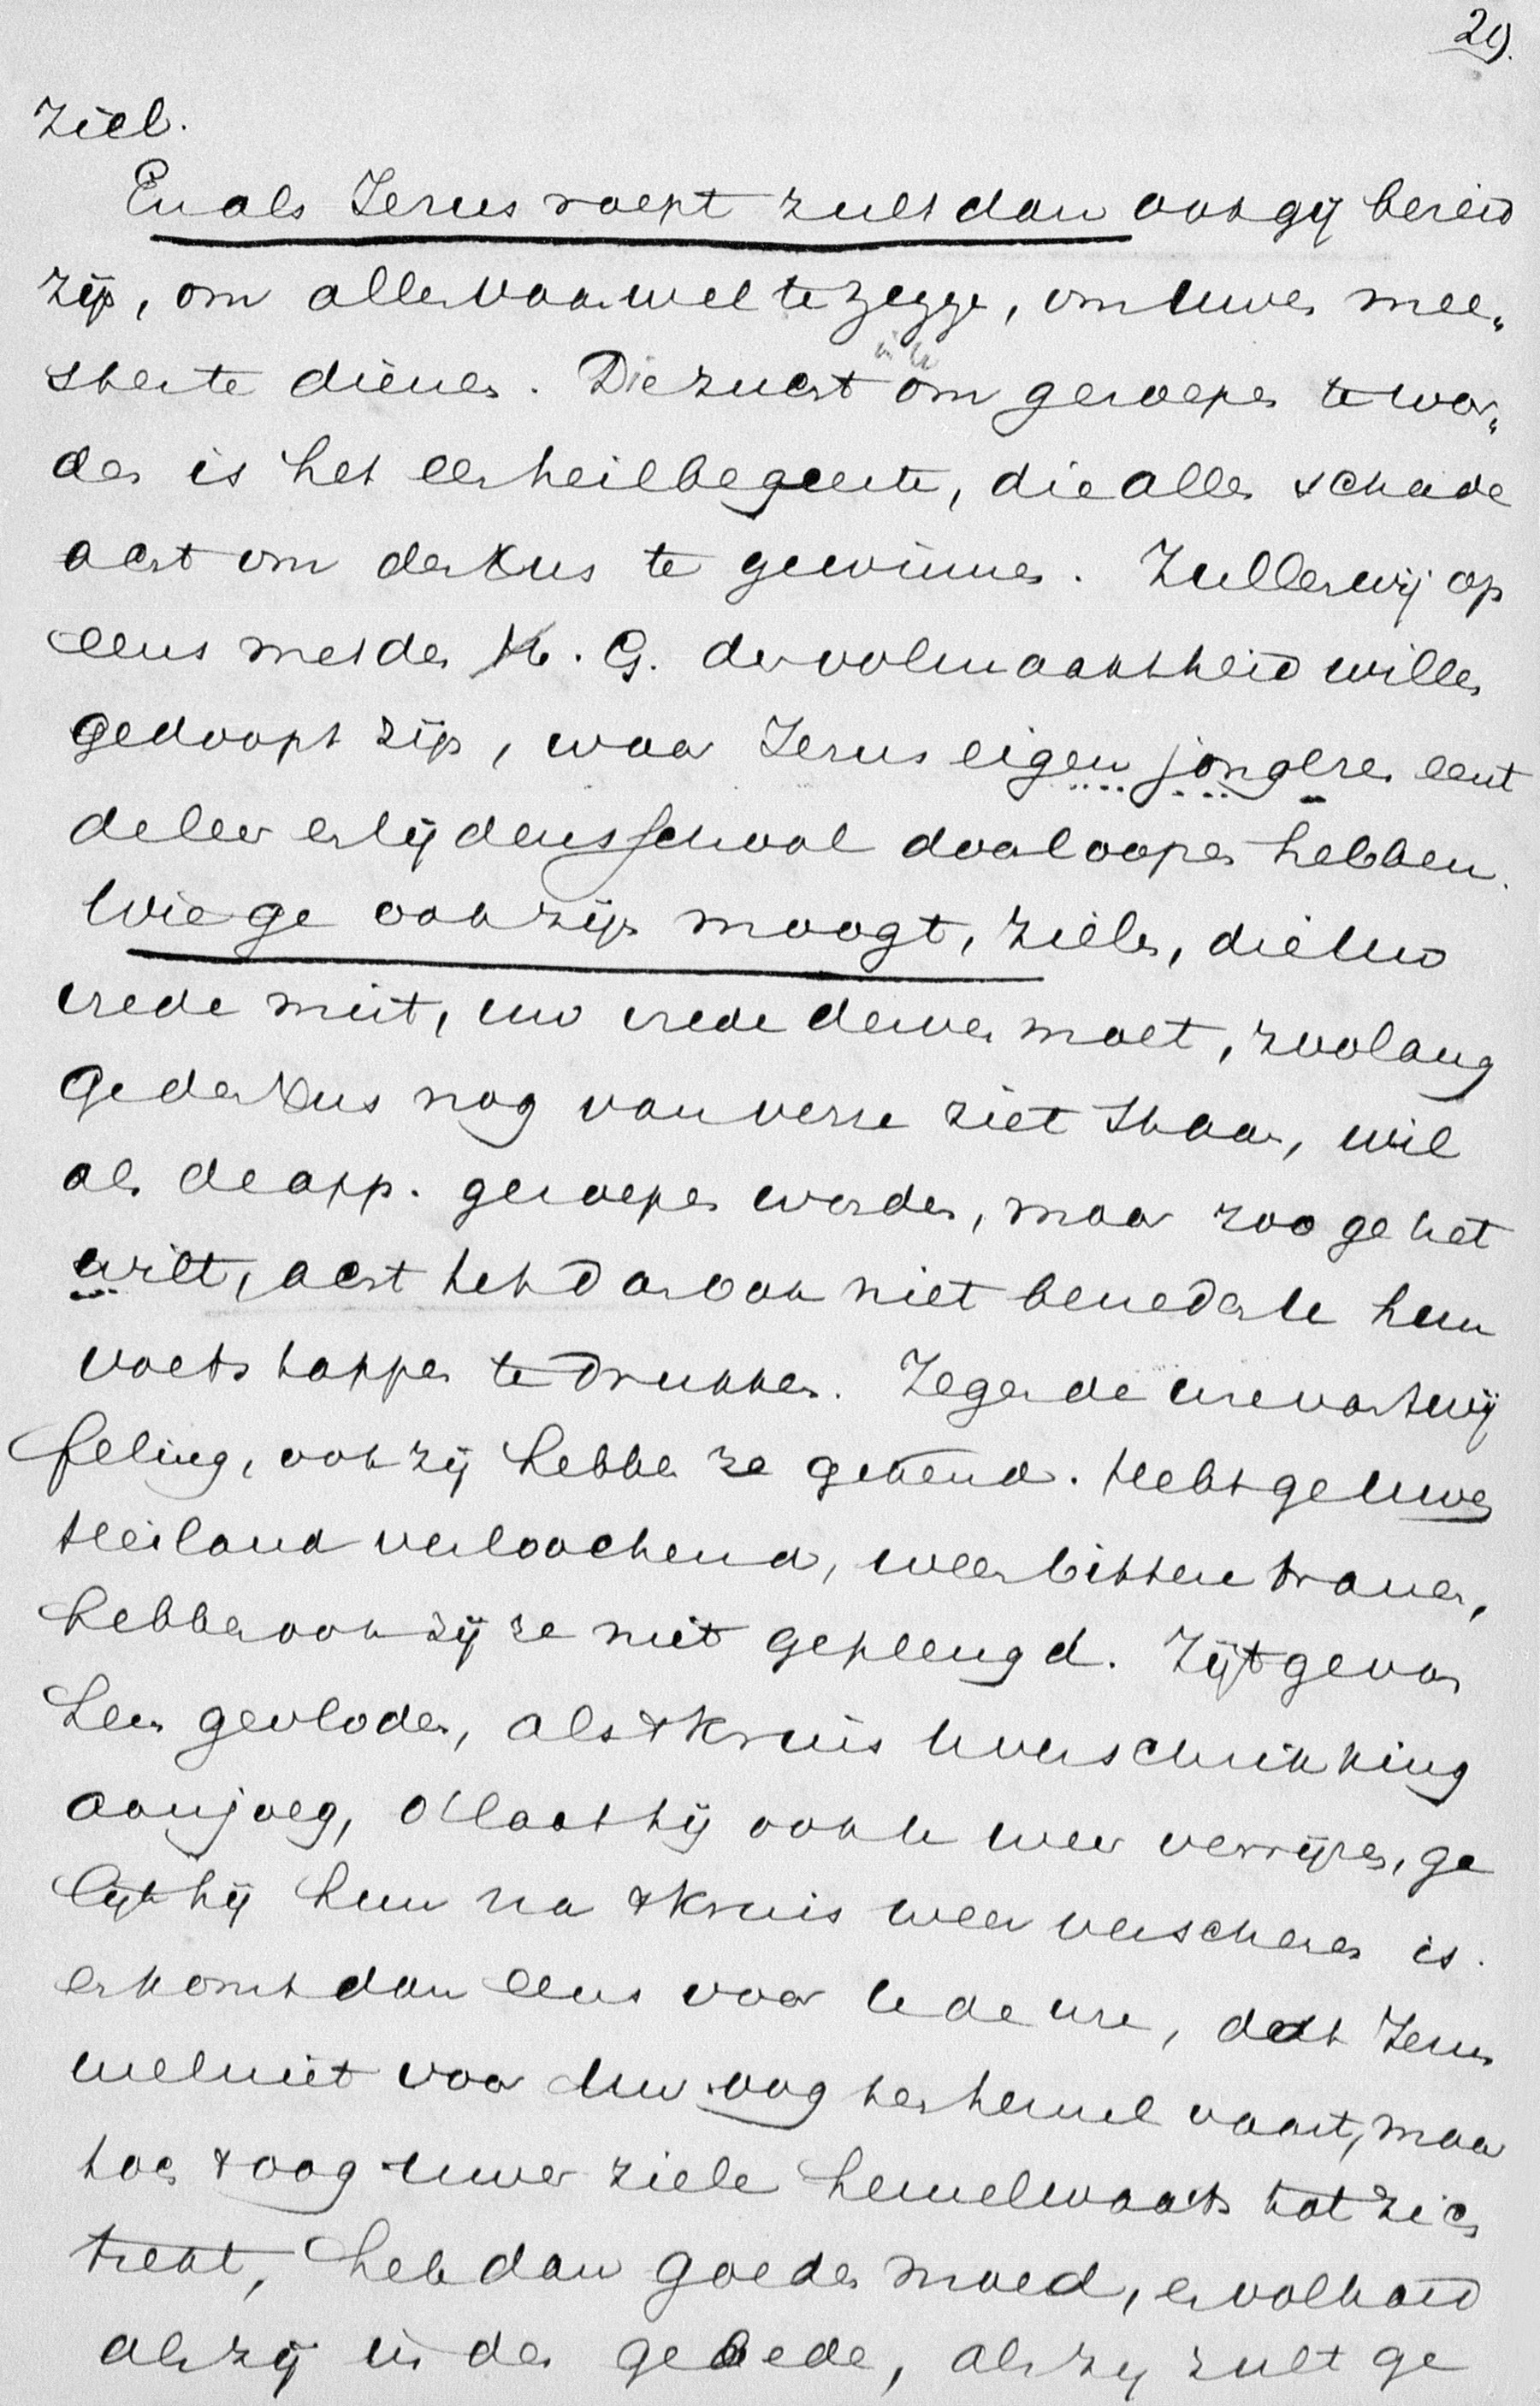 29.
ziel.
En als Jezus roept zult dan ook gij bereid
zijn, om alles vaarwel te zeggen, om uwen mee„
ster te dienen. Die zucht in u om geroepen te wor„
den is het een heilbegeerte, die alles schade
acht om den Xus te gewinnen. Zullen wij op
eens met den H. G. der volmaaktheid willen
gedoopt zijn, waar Jezus eigen jongeren eerst
de leer en lijdensschool doorloopen hebben.
Wie ge ook zijn moogt, zielen, die uw
vrede mist, uw vrede derven moet, zoolang
ge den Xus nog van verre ziet staan, wil
als de app. geroepen worden, maar zoo ge het
wilt, acht het dan ook niet beneden u hun
voetstappen te drukken. Zegen de ure van twij
feling, ook zij hebben ze gekend. Hebt ge uwen
Heiland verloochend, ween bittere tranen,
hebben ook zij ze niet geplengd. Zijt ge van
hem gevloden, als 't kruis u verschrikking
aanjoeg, o laat hij ook u weer verrijzen, ge
lijk hij hun na 't kruis weer verschenen is.
en komt dan eens voor u de ure, dat Jezus
wel niet voor uw oog ten hemel vaart, maar
toch 't oog uwer ziele hemelwaarts tot zich
trekt, heb dan goeden moed, en volhard
als zij in den gebede, als zij zult ge